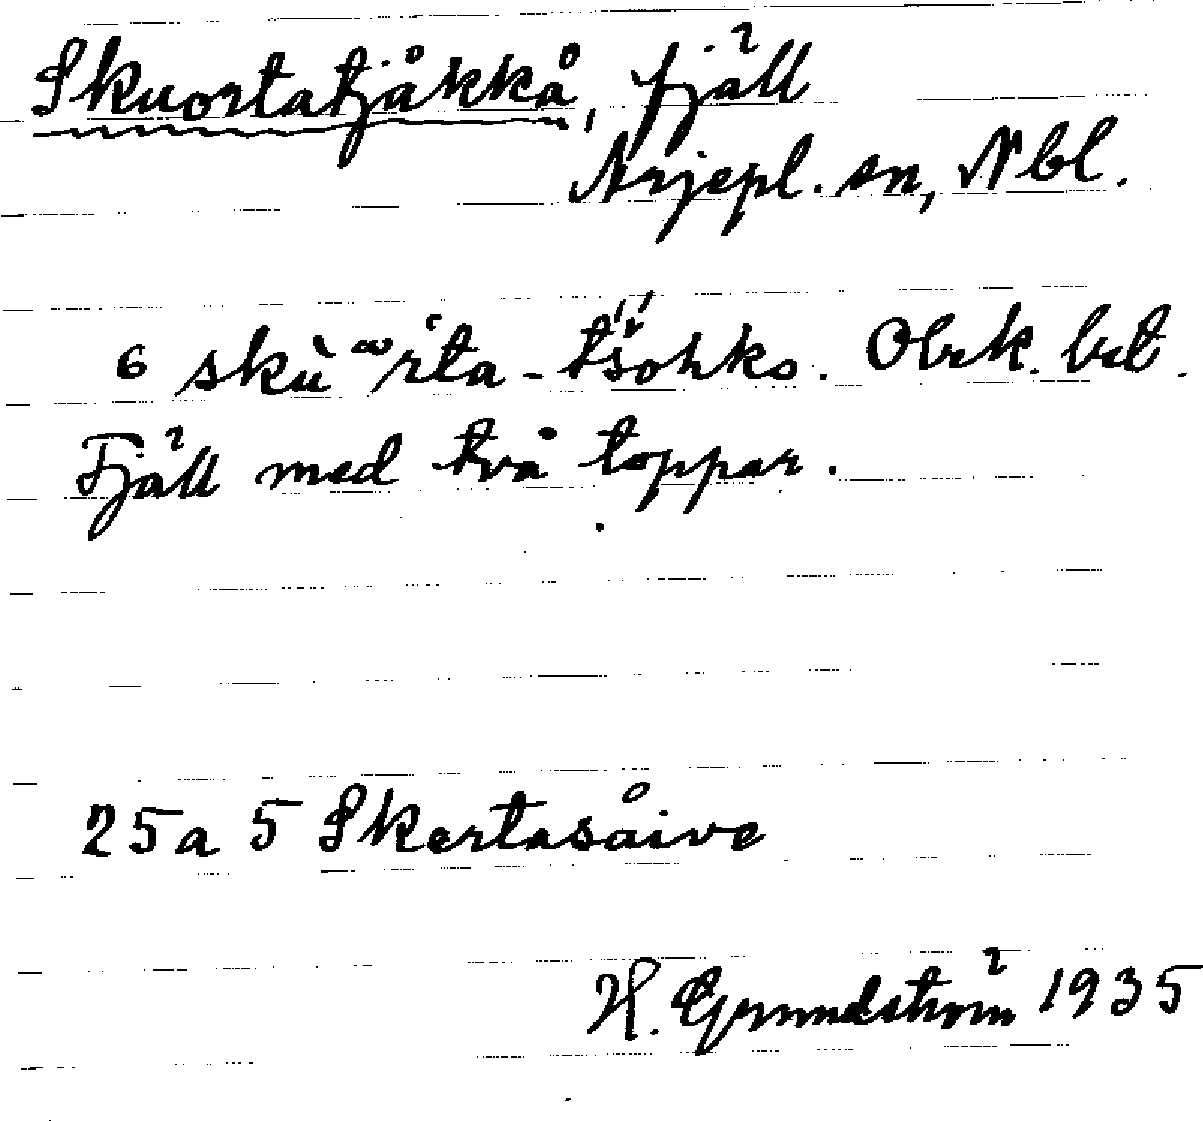 Skuortatjåkkå, fjäll
Arjepl. sn, Nbl.
6 skù ͚rʿta - tš́ohko. Obek. bet.
Fjäll med två toppar.
25a 5 Skertasåive
H. Grundström 1935